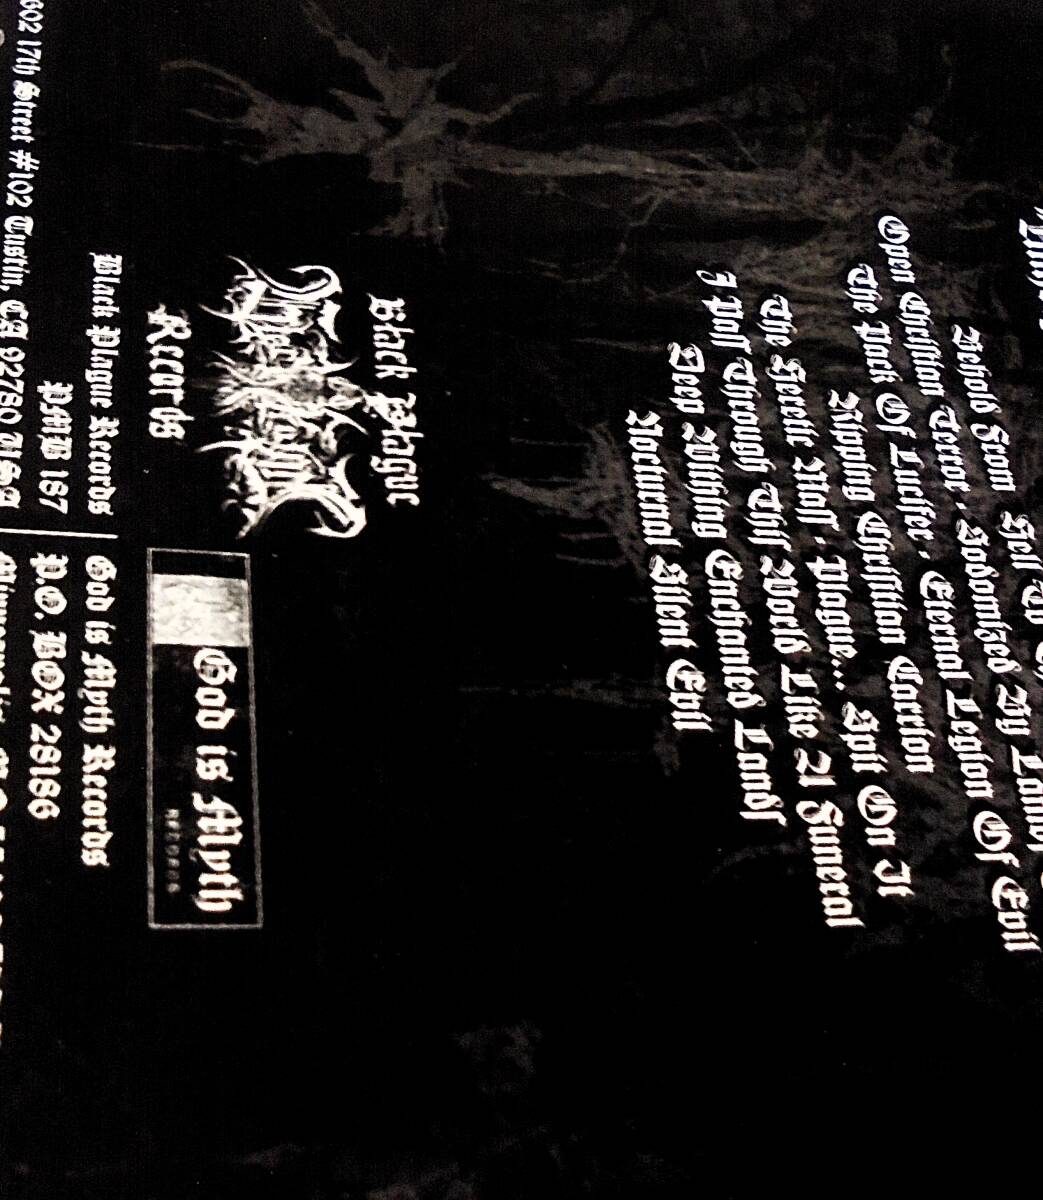 Behold From Hell To
Open Christian Terror - Sodomized By Lamb,
The Pack Of Lucifer - Eternal Legion Of Evil
Ripping Christian Carrion
The Heretic Noll - Plague... Spit On It
I Pass Through This World Like A Funeral
Deep Within Enchanted Lands
Nocturnal Silent Evil
Black Plague
Records
God is Myth
RECORDS
Black Plague Records
PMB 187
602 17th Street #102 Tustin, CA 92780 USA
God is Myth Records
P.O. BOX 28186